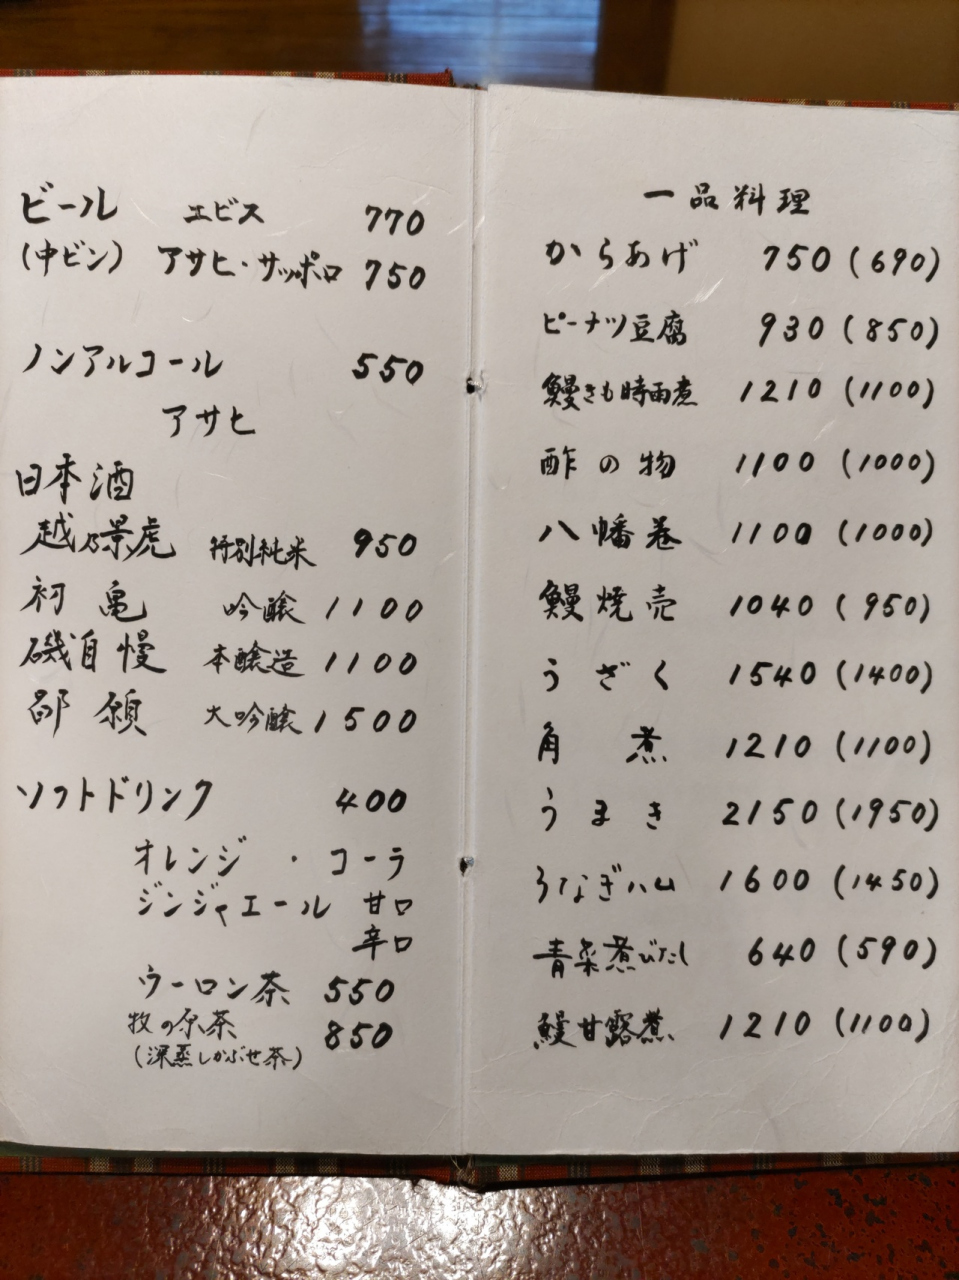 ビール エビス 770
(中ビン) アサヒ・サッポロ 750
ノンアルコール 550
アサヒ
日本酒
越乃景虎 特別純米 950
初亀 吟醸 1100
磯自慢 本醸造 1100
醉願 大吟醸 1500
ソフトドリンク 400
オレンジ ・ コーラ
ジンジャエール 甘口
辛口
ウーロン茶 550
牧の原茶 850
(深蒸しかぶせ茶)
一品料理
からあげ 750 (690)
ピーナツ豆腐 930 (850)
鰻きも時雨煮 1210 (1100)
酢の物 1100 (1000)
八幡巻 1100 (1000)
鰻焼売 1040 (950)
うざく 1540 (1400)
角煮 1210 (1100)
うまき 2150 (1950)
うなぎハム 1600 (1450)
青菜煮びたし 640 (590)
鰻甘露煮 1210 (1100)